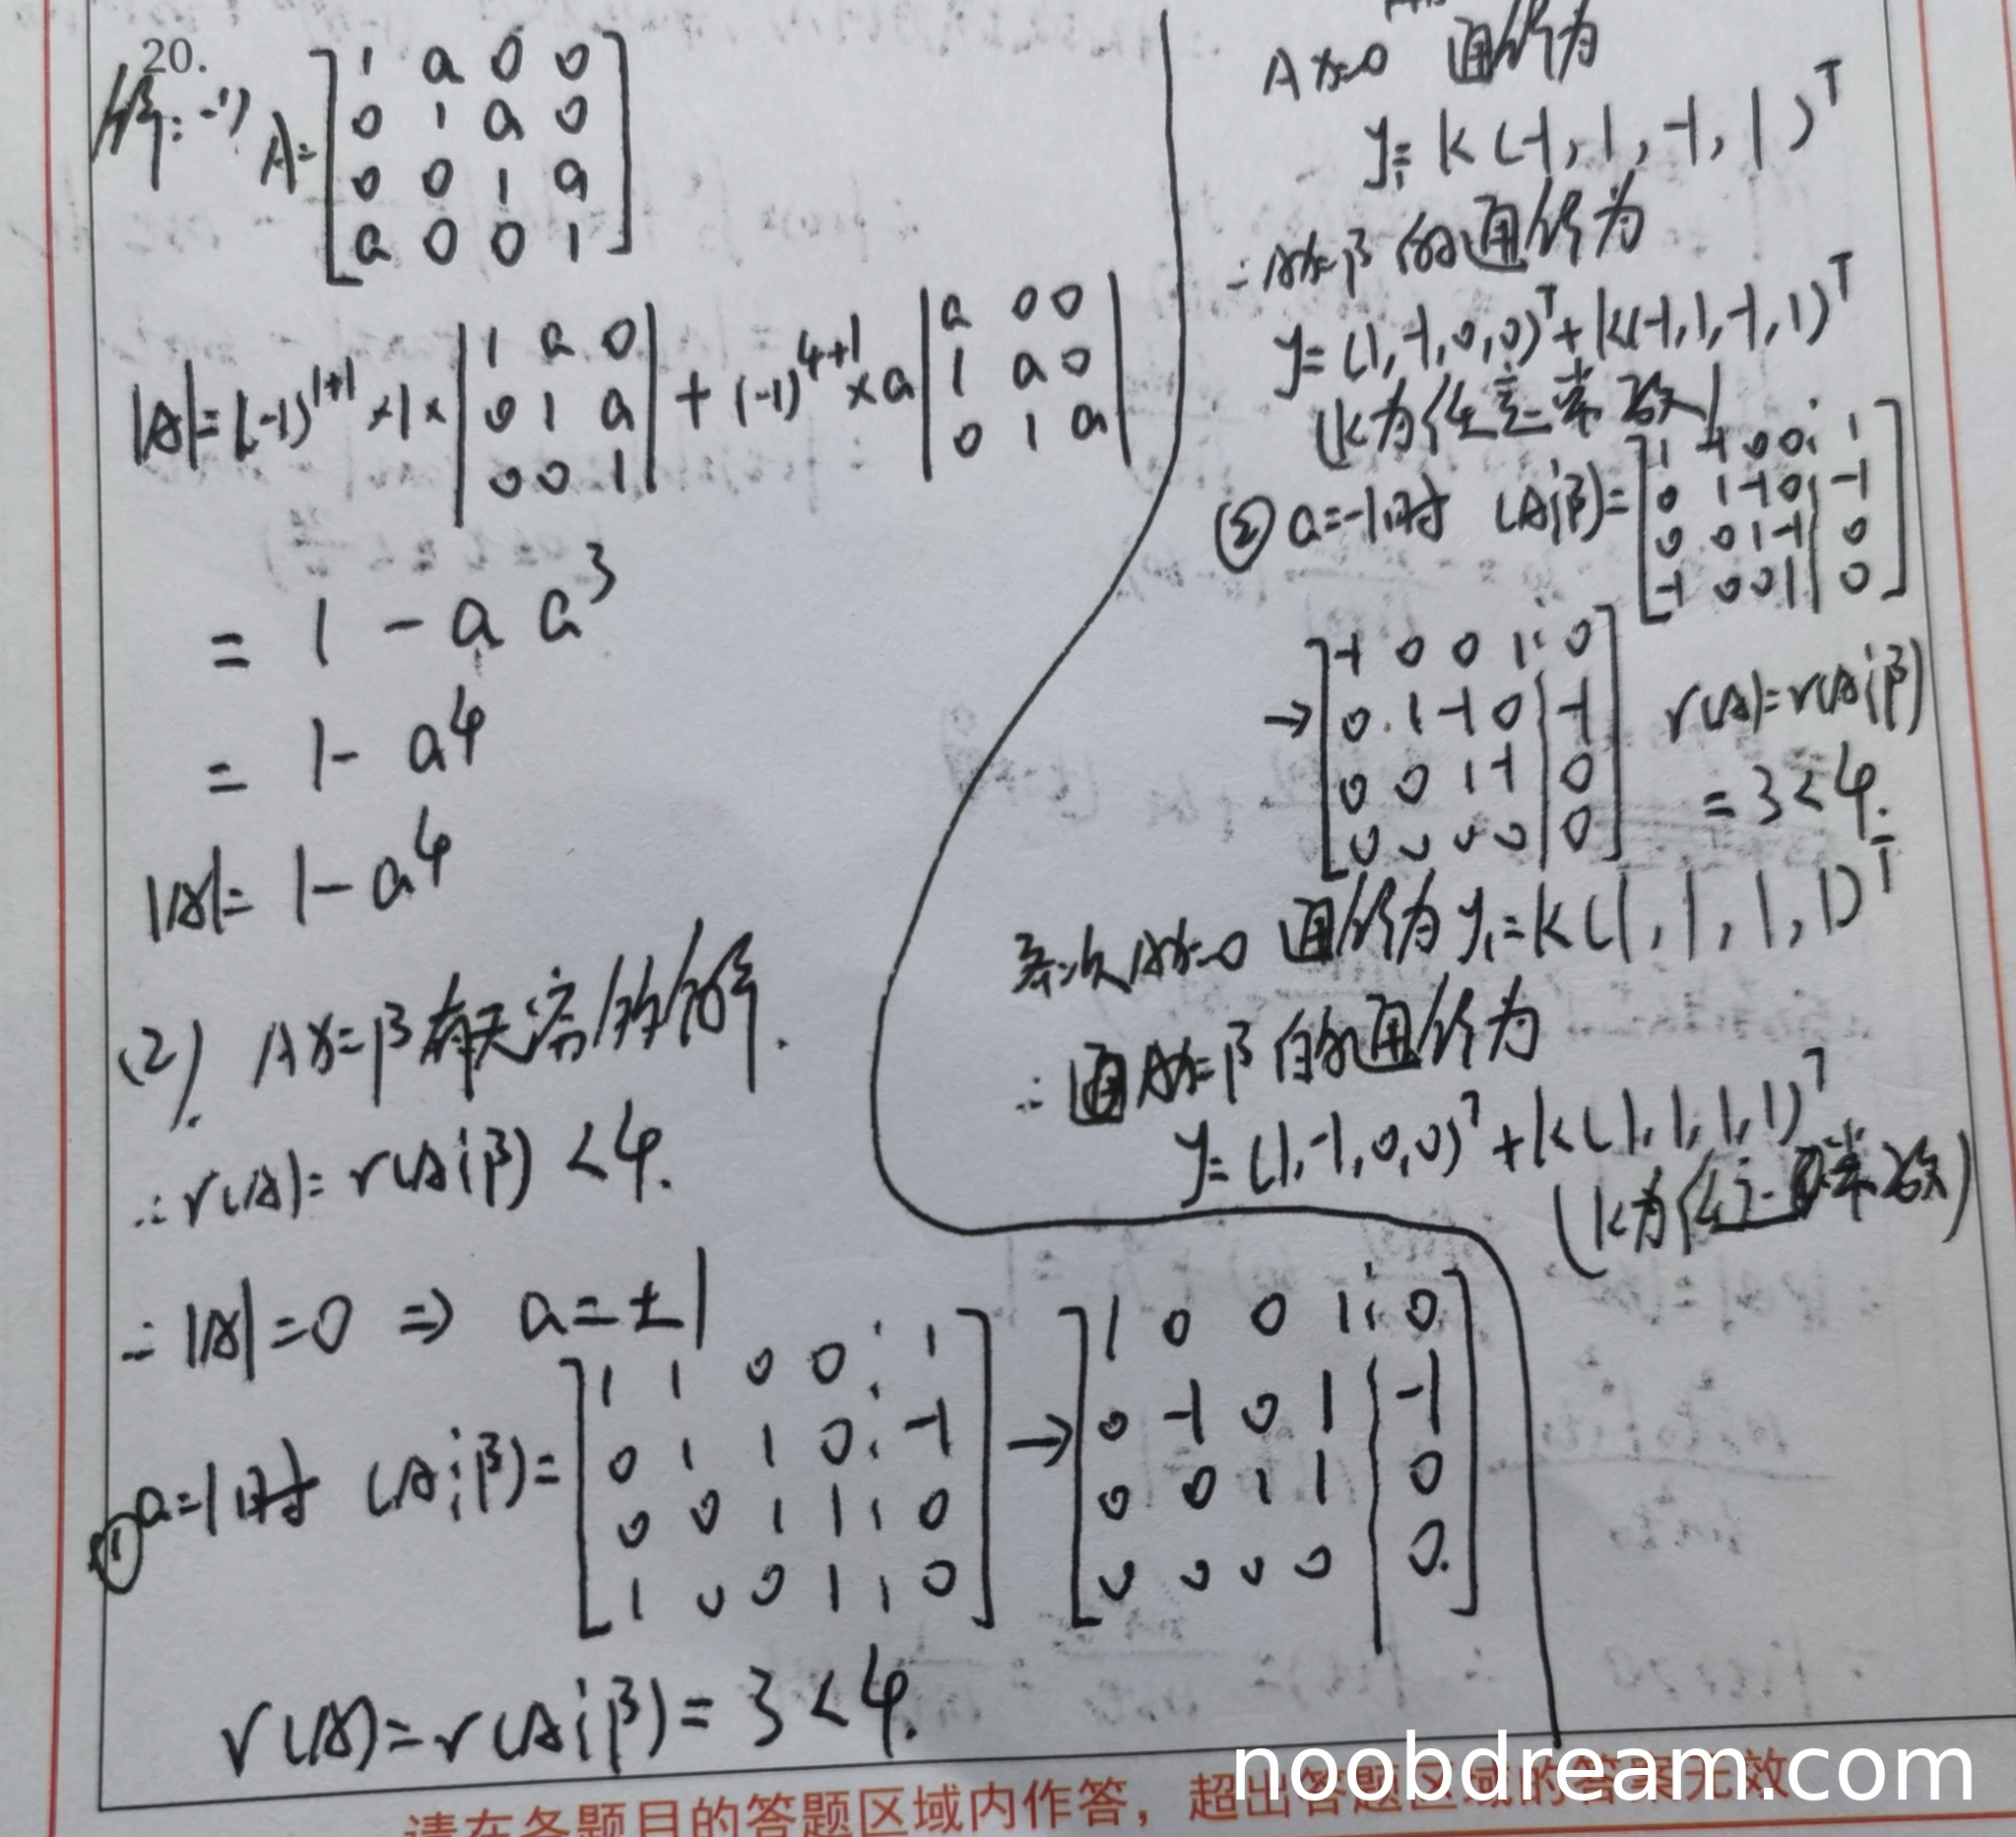 20.
解:(1) A=[1 a 0 0
0 1 a 0
0 0 1 a
a 0 0 1]
|A|=(-1)^{1+1}×1×|1 a 0
0 1 a
0 0 1| + (-1)^{4+1}×a|a 0 0
1 a 0
0 1 a|
= 1 - a a³
= 1- a⁴
|A|= 1-a⁴
(2). Ax=β有无穷的解.
∴r(A)= r(A¦β) <4.
∴|A|=0 ⇒ a=±1
①a=1时 (A¦β)=[1 1 0 0 ¦ 1
0 1 1 0 ¦ -1
0 0 1 1 ¦ 0
1 0 0 1 ¦ 0]
→[1 0 0 1 ¦ 0
0 -1 0 1 | -1
0 0 1 1 | 0
0 0 0 0 | 0.]
r(A)=r(A¦β)= 3<4.
Ax=0 通解为
y₁= k(-1, 1, -1, 1)ᵀ
∴Ax=β 的通解为
y= (1,-1,0,0)ᵀ+k(-1,1,-1,1)ᵀ
(k为任意常数)
② a=-1时 (A¦β)=[1 -1 0 0 ¦ 1
0 1 -1 0 | -1
0 0 1 -1 | 0
-1 0 0 1 | 0]
→[-1 0 0 1 ¦ 0
0 1 -1 0 | -1
0 0 1 -1 | 0
0 0 0 0 | 0]
r(A)=r(A¦β)
= 3<4.
齐次Ax=0 通解为y₁=k(1,1,1,1)ᵀ
∴通Ax=β 的通解为
y= (1,-1,0,0)ᵀ+k(1,1,1,1)ᵀ
(k为任意常数)
请在各题目的答题区域内作答，超出答题区域的答案无效
noobdream.com